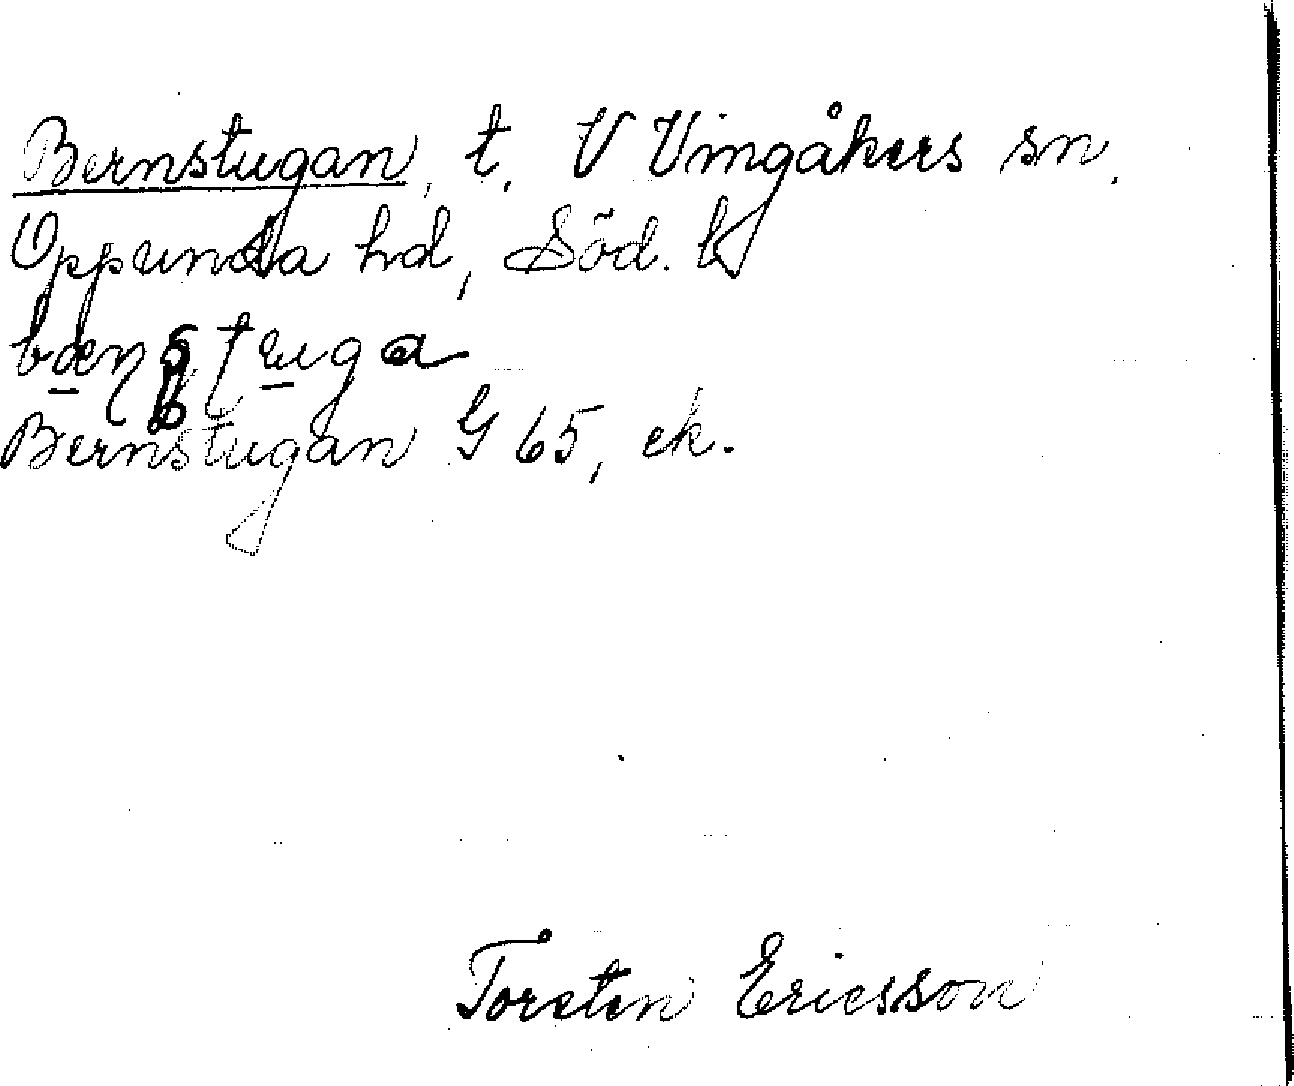 Bernstugan, t. V Vingåkers sn.
Oppunda hd, Söd. l.
Bernstugan G 65, ek.
Torsten Ericsson